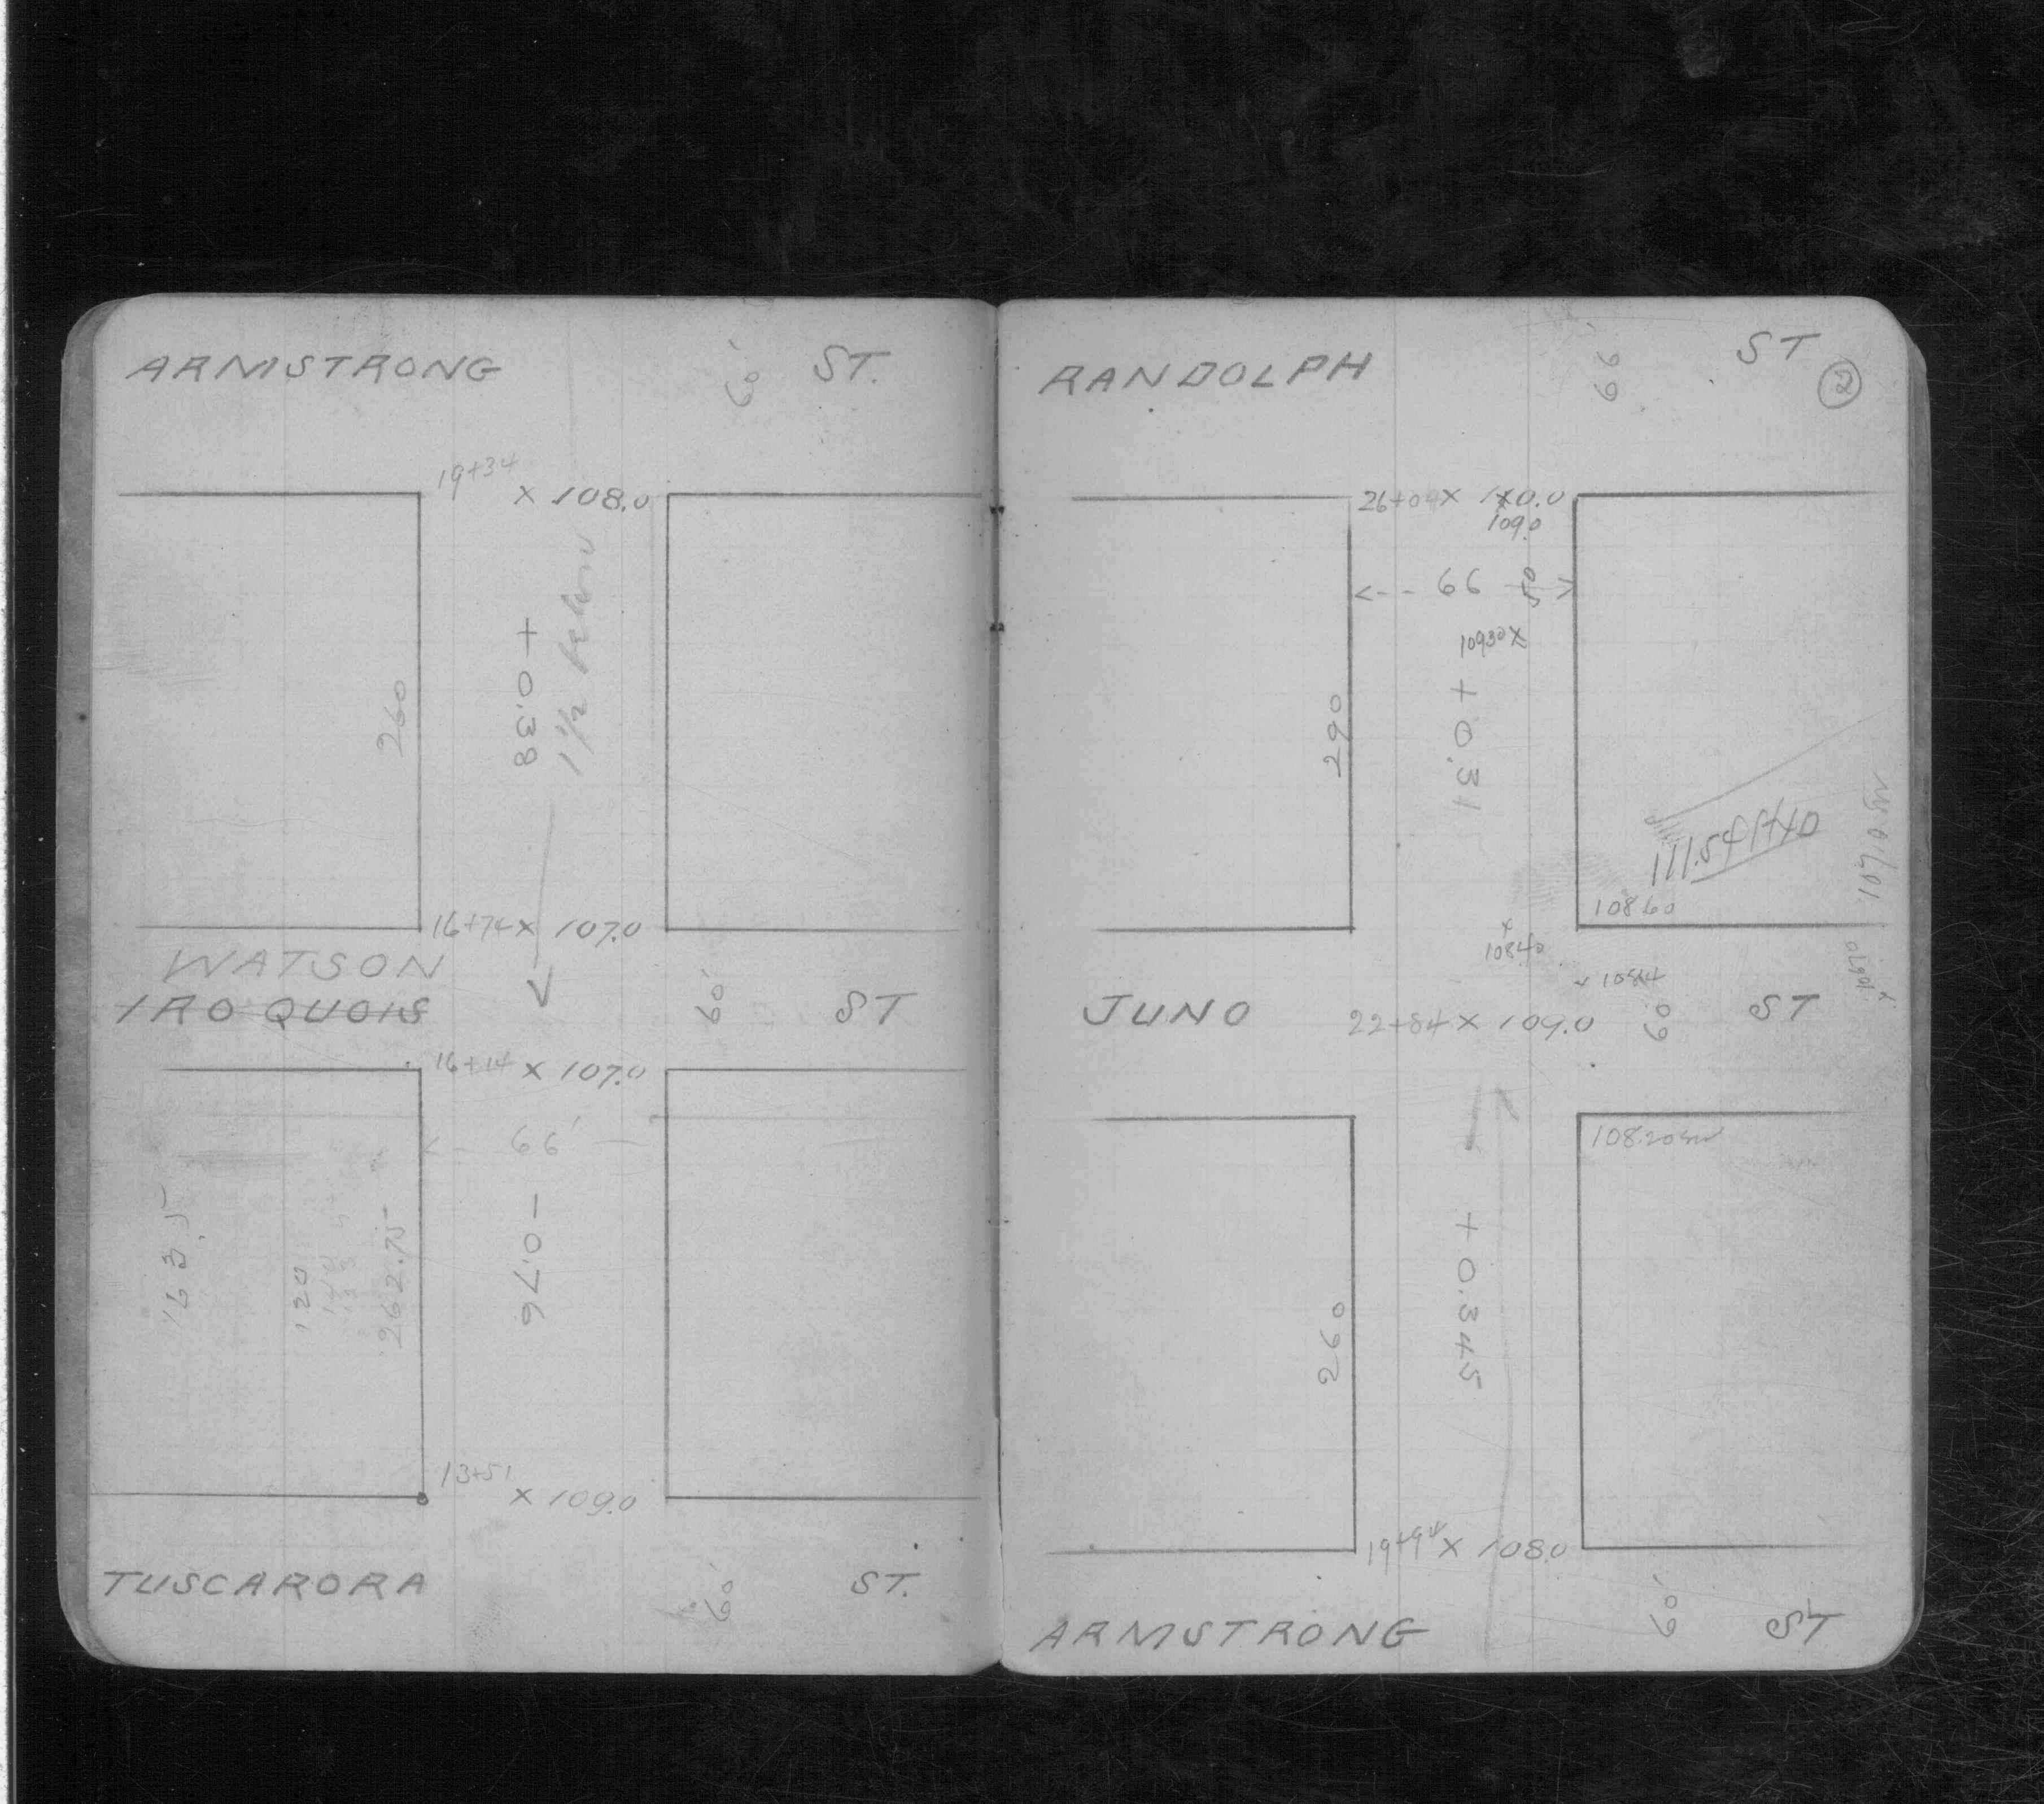 ARMSTRONG 60' ST.
19+34
X 108.0
+0.38
1 1/2 below
260
16+74 X 107.0
WATSON
IROQUOIS 60' ST
16+14 X 107.0
66'
-0.76
163.5
120
262.75
13+51
X 109.0
TUSCARORA 60' ST.
RANDOLPH 66' ST
2
26+04 X 110.0
109.0
66 50
109.30 X
+0.31
290
111.54
108.60
X
108.40
106.70
X
JUNO 60' ST
22+84 X 109.0
108.20 SW
+0.345
260
19+94 X 108.0
ARMSTRONG 60' ST